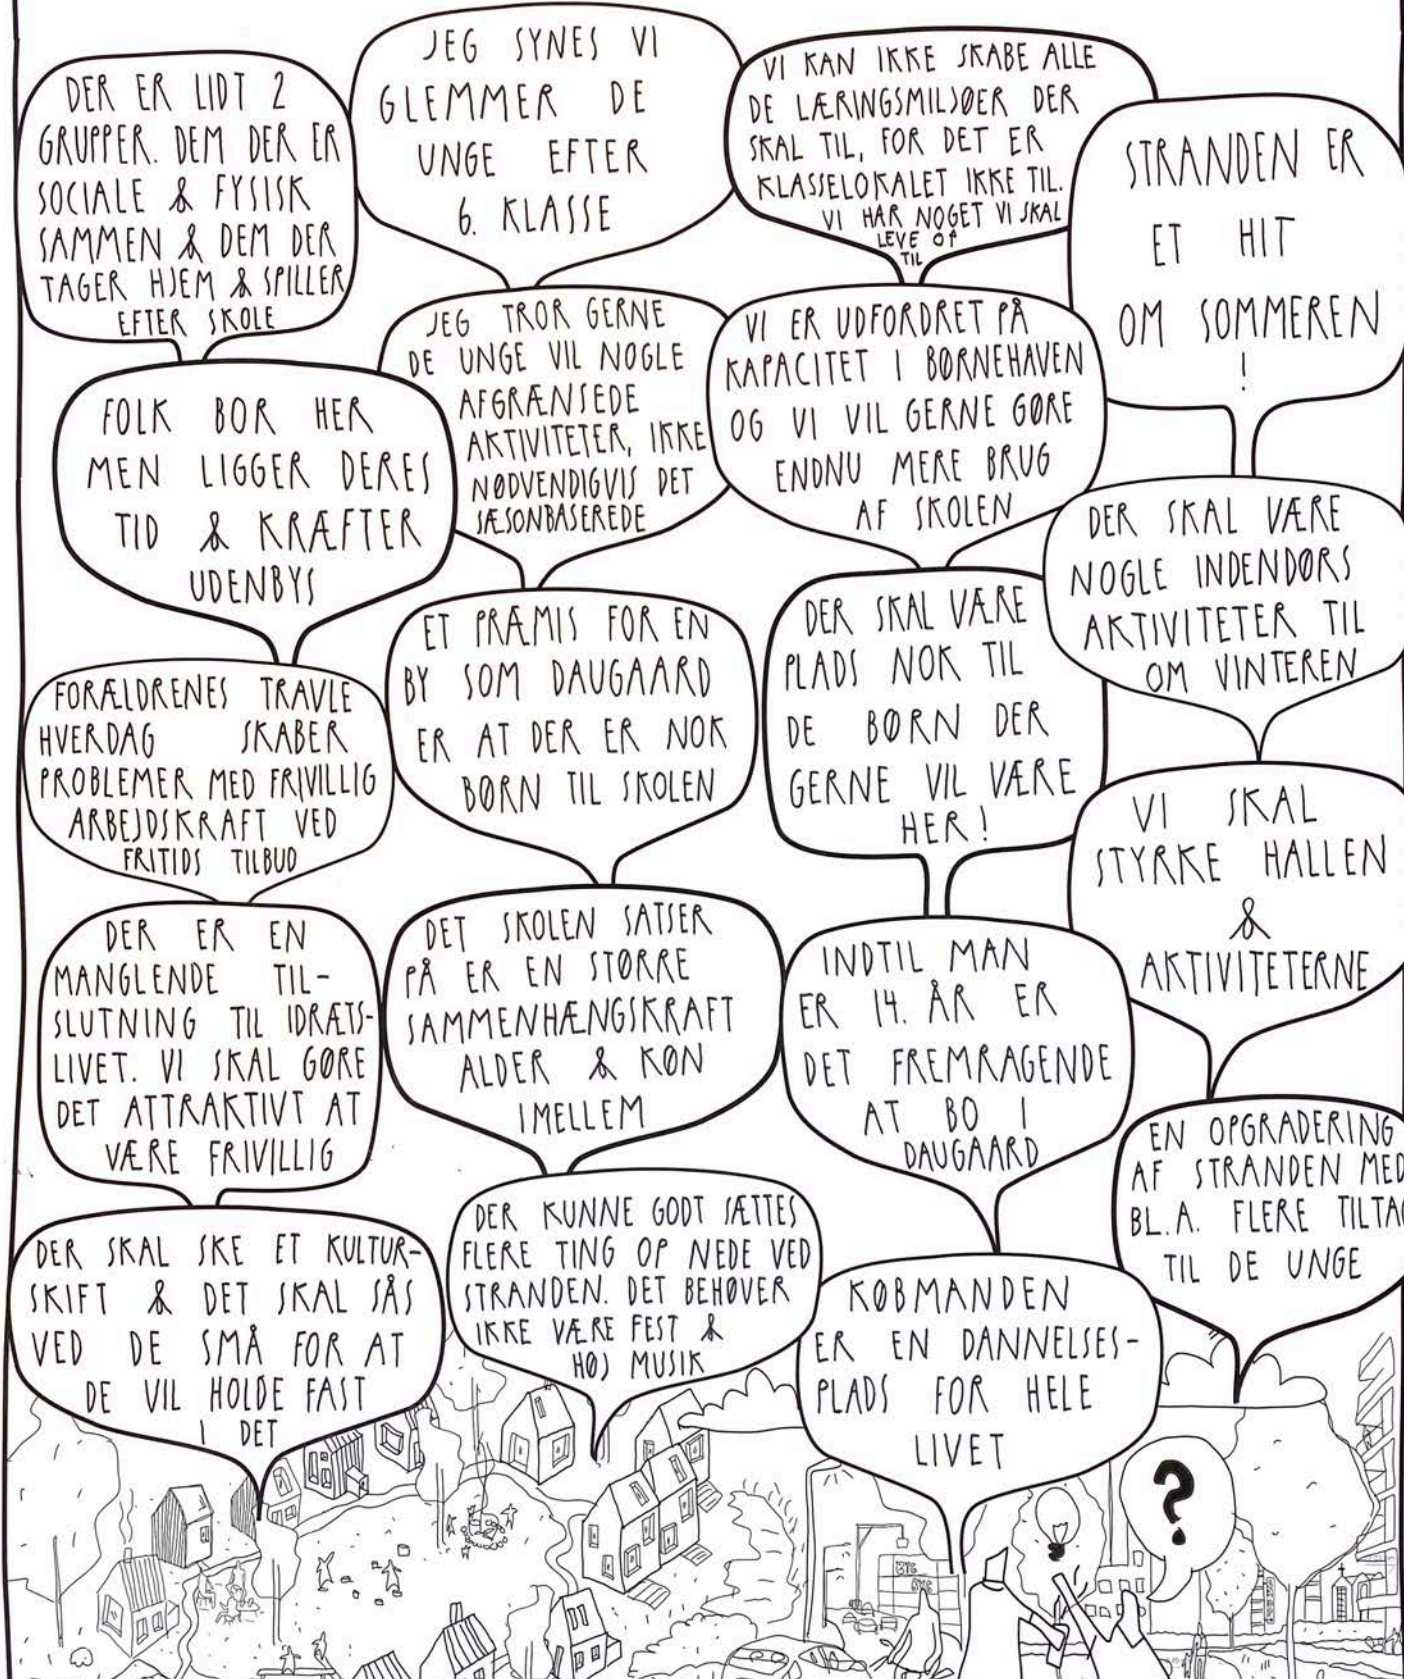 DER ER LIDT 2
GRUPPER. DEM DER ER
SOCIALE & FYSISK
SAMMEN & DEM DER
TAGER HJEM & SPILLER
EFTER SKOLE
FOLK BOR HER
MEN LIGGER DERES
TID & KRÆFTER
UDENBYS
FORÆLDRENES TRAVLE
HVERDAG SKABER
PROBLEMER MED FRIVILLIG
ARBEJDSKRAFT VED
FRITIDS TILBUD
DER ER EN
MANGLENDE TIL-
SLUTNING TIL IDRÆTS-
LIVET. VI SKAL GØRE
DET ATTRAKTIVT AT
VÆRE FRIVILLIG
DER SKAL SKE ET KULTUR-
SKIFT & DET SKAL SÅS
VED DE SMÅ FOR AT
DE VIL HOLDE FAST
I DET
JEG SYNES VI
GLEMMER DE
UNGE EFTER
6. KLASSE
JEG TROR GERNE
DE UNGE VIL NOGLE
AFGRÆNSEDE
AKTIVITETER, IKKE
NØDVENDIGVIS DET
SÆSONBASEREDE
ET PRÆMIS FOR EN
BY SOM DAUGAARD
ER AT DER ER NOK
BØRN TIL SKOLEN
DET SKOLEN SATSER
PÅ ER EN STØRRE
SAMMENHÆNGSKRAFT
ALDER & KØN
IMELLEM
DER KUNNE GODT SÆTTES
FLERE TING OP NEDE VED
STRANDEN. DET BEHØVER
IKKE VÆRE FEST &
HØJ MUSIK
VI KAN IKKE SKABE ALLE
DE LÆRINGSMILJØER DER
SKAL TIL, FOR DET ER
KLASSELOKALET IKKE TIL.
VI HAR NOGET VI SKAL
LEVE OP
TIL
VI ER UDFORDRET PÅ
KAPACITET I BØRNEHAVEN
OG VI VIL GERNE GØRE
ENDNU MERE BRUG
AF SKOLEN
DER SKAL VÆRE
PLADS NOK TIL
DE BØRN DER
GERNE VIL VÆRE
HER!
INDTIL MAN
ER 14. ÅR ER
DET FREMRAGENDE
AT BO I
DAUGAARD
KØBMANDEN
ER EN DANNELSES-
PLADS FOR HELE
LIVET
STRANDEN ER
ET HIT
OM SOMMEREN
!
DER SKAL VÆRE
NOGLE INDENDØRS
AKTIVITETER TIL
OM VINTEREN
VI SKAL
STYRKE HALLEN
&
AKTIVITETERNE
EN OPGRADERING
AF STRANDEN MED
BL.A. FLERE TILTA
TIL DE UNGE
?